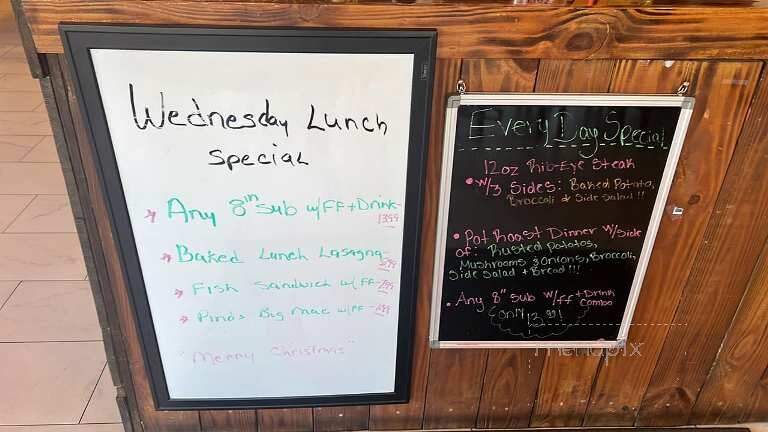 Wednesday Lunch
Special
Any 8in Sub w/FF + Drink-
1399
Baked Lunch Lasagna-
Fish Sandwich w/FF-
Pino's Big Mac w/FF-
"Merry Christmas"
Every Day Special
12oz Rib-Eye Steak
• w/3 Sides: Baked Potato,
Broccoli & Side Salad!!
• Pot Roast Dinner w/Side
of: Rusted Potatos,
Mushrooms & Onions, Broccoli,
Side Salad + Bread!!!
• Any 8" Sub w/FF + Drink
Combo
only 13.99!
menupix